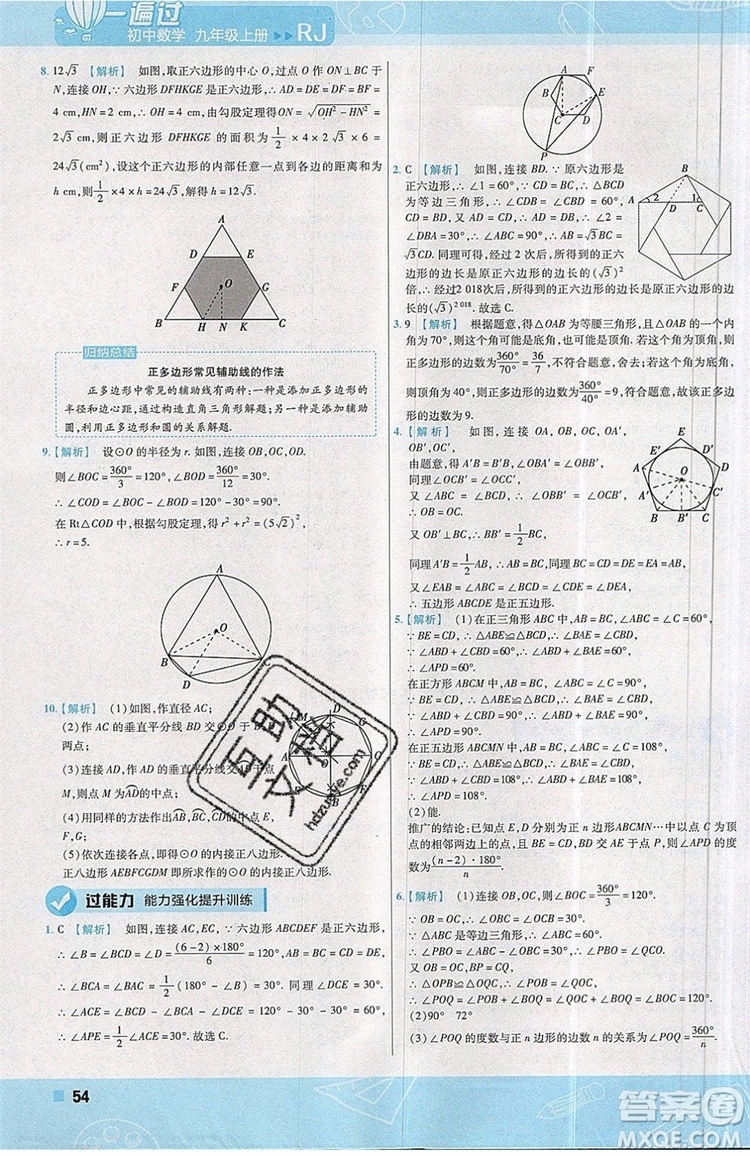 一遍过
初中数学 九年级上册 ▶▶ RJ
8. 12√3 【解析】 如图,取正六边形的中心 O,过点 O 作 ON⊥BC 于
N,连接 OH,∵ 六边形 DFHKGE 是正六边形,∴ AD = DE = DF = BF =
4 cm,HN = 2 cm,∴ OH = 4 cm,由勾股定理得ON = √(OH² − HN²) =
2√3 cm,则正六边形 DFHKGE 的面积为 1/2 × 4 × 2√3 × 6 =
24√3(cm²),设这个正六边形的内部任意一点到各边的距离和为
h cm,则 1/2 × 4 × h = 24√3,解得 h = 12√3.
A
D E
F G
O
B H N K C
归纳总结
正多边形常见辅助线的作法
正多边形中常见的辅助线有两种:一种是添加正多边形的
半径和边心距,通过构造直角三角形解题;另一种是添加辅助
圆,利用正多边形和圆的关系解题.
9.【解析】 设⊙O 的半径为 r. 如图,连接 OB,OC,OD.
则 ∠BOC = 360°/3 = 120°,∠BOD = 360°/12 = 30°.
∴ ∠COD = ∠BOC − ∠BOD = 120° − 30° = 90°.
在 Rt△COD 中,根据勾股定理得 r² + r² = (5√2)²,
∴ r = 5.
A
O
B C
D
10.【解析】 (1)如图,作直径 AC;
(2)作 AC 的垂直平分线 BD 交⊙O 于
两点;
(3)连接 AD,作 AD 的垂直平分线交AD于点
M,则点 M 为AD的中点;
(4)用同样的方法作出AB,BC,CD的中点 E,
F,G;
(5)依次连接各点,即得⊙O 的内接正八边形.
正八边形 AEBFCGDM 即为⊙O 的内接正八边形.
过能力 能力强化提升训练
1. C 【解析】 如图,连接 AC,EC,∵ 六边形 ABCDEF 是正六边形,
∴ ∠B = ∠BCD = ∠D = (6−2)×180°/6 = 120°,AB = BC = CD = DE,
∴ ∠BCA = ∠BAC = 1/2(180° − ∠B) = 30°. 同理 ∠DCE = 30°,
∴ ∠ACE = ∠BCD − ∠BCA − ∠DCE = 120° − 30° − 30° = 60°,
∴ ∠APE = 1/2∠ACE = 30°. 故选 C.
A F
B E
C D
P
2. C 【解析】 如图,连接 BD. ∵ 原六边形是
正六边形,∴ ∠1 = 60°,∵ CD = BC,∴ △BCD
为等边三角形,∴ ∠CDB = ∠CBD = 60°,BD =
CD = BC. 又 AD = CD,∴ AD = BD,∴ ∠2 =
∠DBA = 30°,∴ ∠ABC = 90°,∴ AB = √3BC =
√3CD. 同理可得经过 2 次后,所得到的正六
边形的边长是原正六边形边长的(√3)²
倍,∴ 经过 2 018次后,所得到的正六边形的边长是原正六边形
边长的(√3)²⁰¹⁸. 故选 C.
B
A 2 1
D C
3. 9 【解析】 根据题意,得△OAB 为等腰三角形,若△OAB 的一个内
角为70°,不符合题意,舍去;若△OAB 的底角为70°,
则顶角为 40°,则正多边形的边数为 360°/40° = 9,符合题意,故该正多
边形的边数为 9.
4.【解析】 如图,连接 OA,OB,OC,
OB′,OC′.
由题意,得 A′B = B′B,∠OBA′ = ∠OBB′,
同理 ∠OCB′ = ∠OCC′,
又∵ OB = OC,
∴ 五边形 ABCDE 是正五边形.
5.【解析】 (1)在正三角形 ABC 中,AB = BC,∠ABC = ∠C = 60°,
∵ BE = CD,∴ △ABE≌△BCD,∴ ∠BAE = ∠CBD,
在正方形 ABCM 中,
∵ BE = CD,∴ △ABE≌△BCD,∴ ∠BAE = ∠CBD,
∴ ∠APD = 90°.
在正五边形 ABCMN 中,
∵ BE = CD,∴ △ABE≌△BCD,∴ ∠BAE = ∠CBD,
(2)能.
推广的结论:已知点 E,D 分别为正 n 边形ABCMN…中以点 C 为顶
点的相邻两边上的点,且 BE = CD,BD 与 AE 交于点 P,则∠APD 的
度数为 (n−2)·180°/n.
6.【解析】 (1)连接 OB,OC,则∠BOC = 360°/3 = 120°.
∵ OB = OC,∴ ∠OBC = ∠OCB = 30°.
∵ △ABC 是等边三角形,∴ ∠ABC = 60°,
∴ ∠PBO = ∠ABC − ∠OBC = 30°,∴ ∠PBO = ∠QCO.
又∵ OB = OC,BP = CQ,∴ △PBO≌△QCO,
∴ ∠BOP = ∠COQ,∴ ∠POQ = ∠BOC = 120°.
(2)90° 72°
(3)∠POQ 的度数与正 n 边形的边数 n 的关系为∠POQ = 360°/n.
54
互助文档
hdzuoye.com
答案圈
MXQE.COM